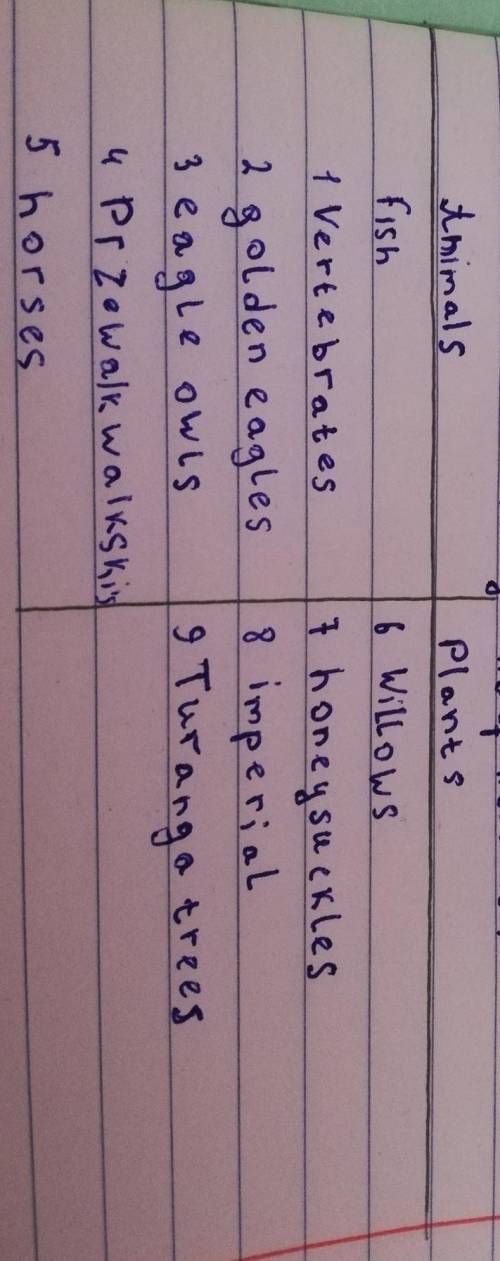 Animals
Plants
fish
6 Willows
1 Vertebrates
7 honeysuckles
2 golden eagles
8 imperial
3 eagle owls
9 Turanga trees
4 Przewalkwalkskis
5 horses